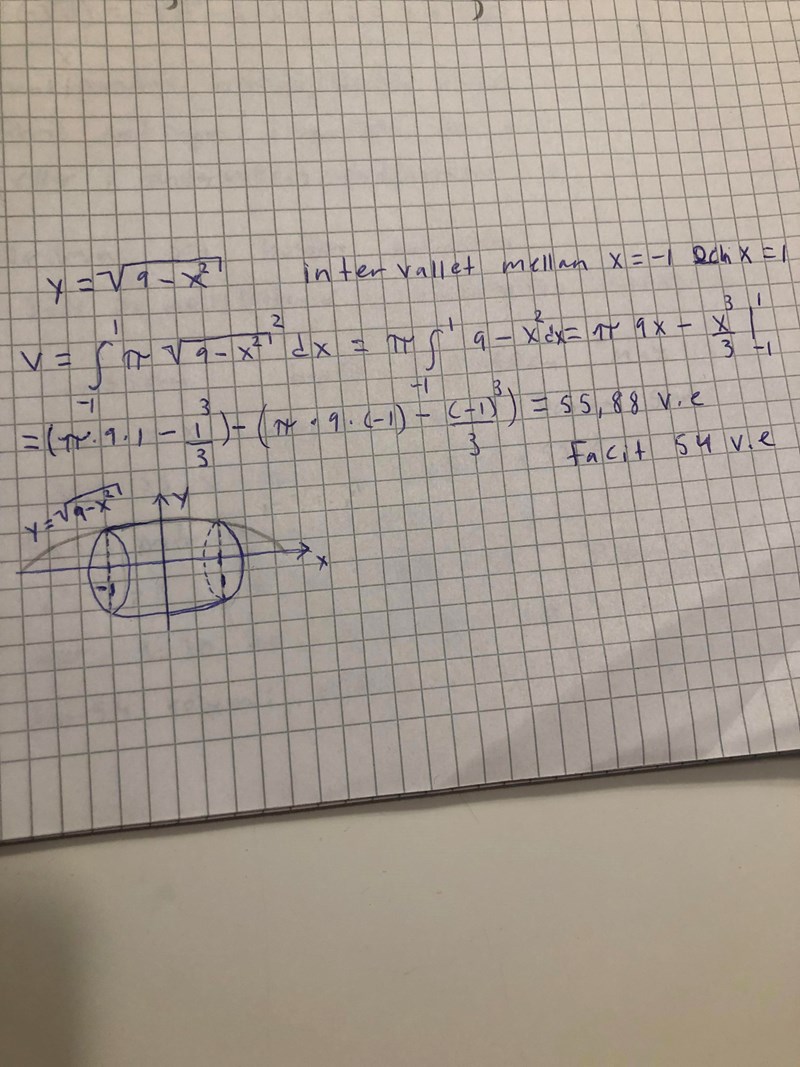 y = √(9 - x²) intervallet mellan x = -1 och x = 1
V = ∫₋₁¹ π √(9 - x²)² dx = π ∫₋₁¹ 9 - x² dx = π 9x - x³/3 |₋₁¹
= (π · 9 · 1 - 1³/3) - (π · 9 · (-1) - (-1)³/3) = 55,88 v.e
facit 54 v.e
y = √(9 - x²) y
x